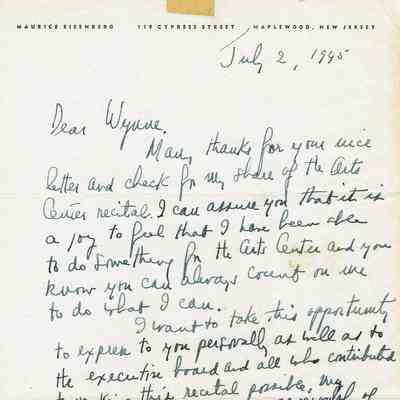 MAURICE EISENBERG 119 CYPRESS STREET MAPLEWOOD, NEW JERSEY
July 2, 1945
Dear Wynne.
Many thanks for your nice
letter and check for my share of the Arts
Center recital. I can assure you that it is
a joy to feel that I have been able
to do something for the Arts Center and you
know you can always count on me
to do what I can.
I want to take this opportunity
to express to you personally as well as to
the executive board and all who contributed
this recital possible, my
of